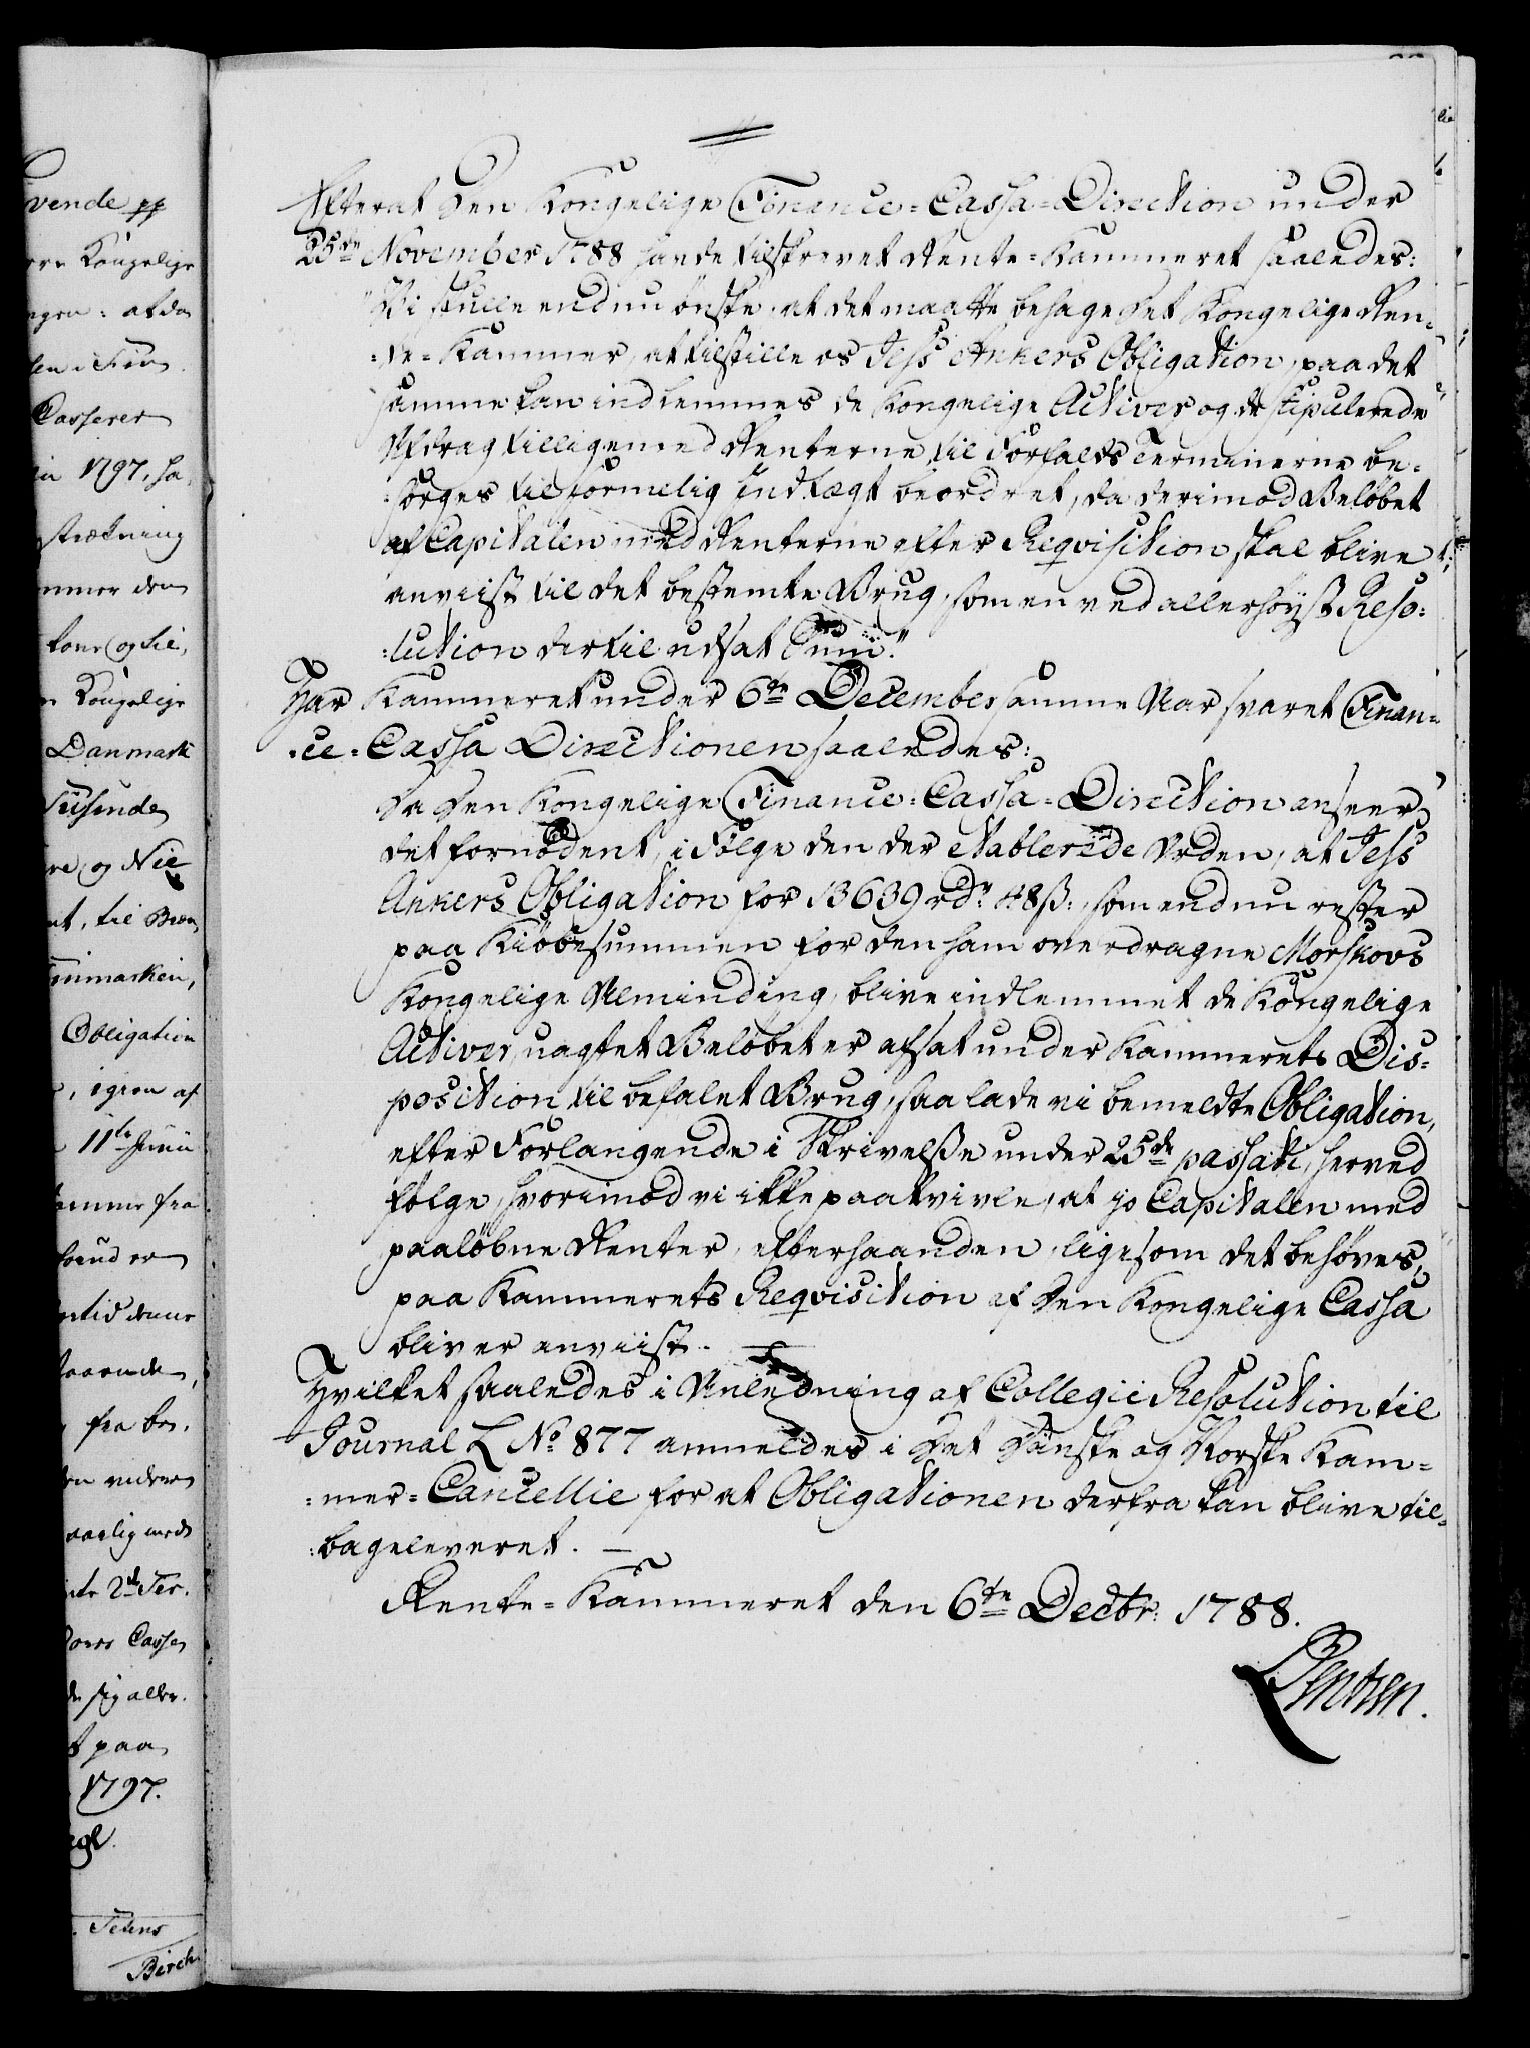 Efterat Den Kongelige Finance-Cassa-Direction under
25de November 1788 havde tilskrevet Rente-Kammeret saaledes:
"Vi skulle endnu ønske, at det maatte behage Det Kongelige Ren-
=te-Kammer, at tilstille os Jess Ankers Obligation, paa det
samme kan indlemmes de Kongelige Activer og de stipulerede
Afdrag tilligemed Renterne til Forfalds Terminerne be-
=sørges til formelig Indtægt beordret, da derimod Beløbet
af Capitalen med Renterne efter Reqvisition skal blive
anviist til det bestemte Brug, som en ved allerhøyst Reso-
=lution dertil udsat Sum."
Har Kammeret under 6te December samme Aar svaret Finan-
=ce-Cassa Directionen saaledes:
Da Den Kongelige Finance-Cassa-Direction anseer
det fornødent, i Følge den der etablerede Orden, at Jess
Ankers Obligation for 13639 rdr 48 ß:, som endnu rester
paa Kiøbesummen for den ham overdragne Morskovs
Kongelige Alminding, blive indlemmet de Kongelige
Activer, uagtet Beløbet er afsat under Kammerets Dis-
position til befalet Brug, saa lade vi bemeldte Obligation,
efter Forlangende i Skrivelse under 25de passati, herved
følge, hvorimod vi ikke paatvivle, at jo Capitalen med
paaløbne Renter, efterhaanden, ligesom det behøves,
paa Kammerets Reqvisition af Den Kongelige Cassa
bliver anviist. —
Hvilket saaledes i Anledning af Collegii Resolution til
Journal L No 877 anmeldes i Det Danske og Norske Kam-
=mer-Cancellie for at Obligationen derfra kan blive til-
=bageleveret. —
Rente-Kammeret den 6te Decbr: 1788.
Bentzen.
vende pp
Kongelige
Casserer
1797, ha,
strækning
Kongelige
Danmark
Tusende
og Nie
til
Obligation
, igien af
11te Junii
fra
2de Ter.
Cassa
sig aller.
paa
1797.
Birch